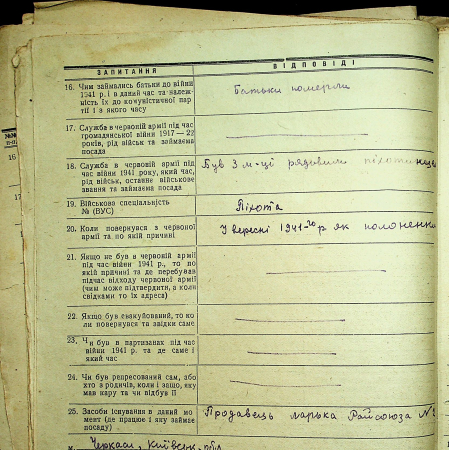 ЗАПИТАННЯ
ВІДПОВІДІ
16. Чим займались батьки до війни
1941 р. і в даний час та належ-
ність їх до комуністичної пар-
тії і з якого часу
Батьки померли
17. Служба в червоній армії під час
громадянської війни 1917—22
років, рід військ та займаема
посада
18. Служба в червоній армії під
час війни 1941 року, який час,
рід військ, останне військове
звання та займаема посада
Був 3 м-ці рядовим піхотинцем
19. Військово спеціальність
№ (ВУС)
Піхота
20. Коли повернувся з червоної
армії та по якій причині
У вересні 1941-го р як полоненни
21. Якщо не був в червоній армії
під час війни 1941 р., то по
якій причині та де перебував
підчас відходу червоної армії
(чим може підтвердити, а коли
свідками то їх адреса)
22. Якщо був евакуйований, то ко
ли повернувся та звідки саме
23. Чи був в партизанах під час
війни 1941 р. та де саме і
який час
24. Чи був репресований сам, або
хто з родичів, коли і защо, яку
мав кару та чи відбув її
25. Засоби існування в даний мо
мент (де працює і яку займає
посаду)
Продавець ларька Райсоюза №
Черкаси, Київськ. обл
16
17
18